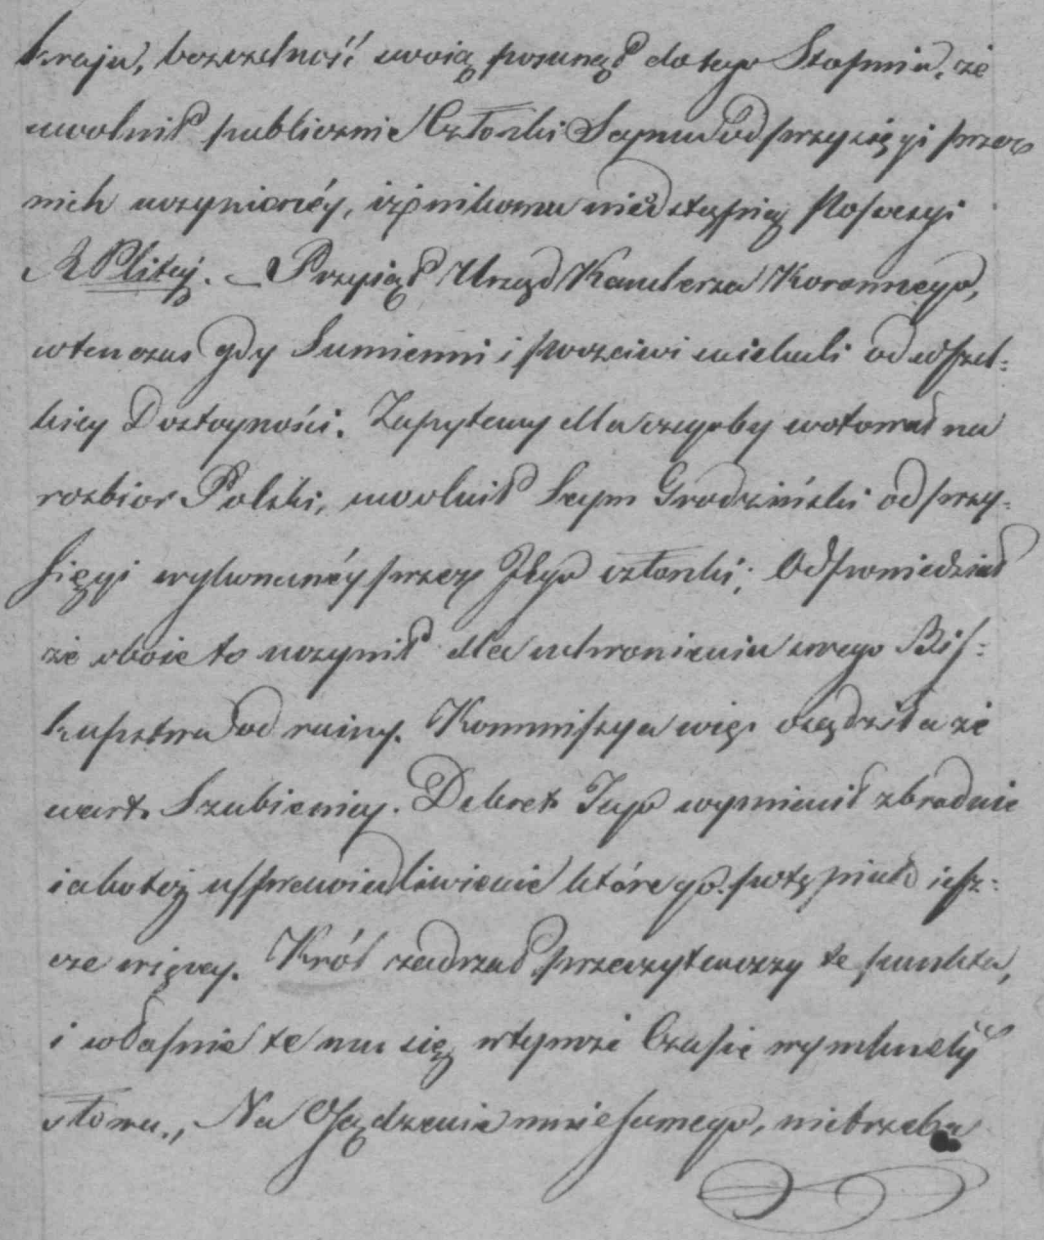 kraju, bezczelność swoią posunął do tego Stopnia, że
uwolnił publicznie Członki Seymu od przysięgi przez
nich uczynionéy, iż nikomu nieodstąpią Possessyi
RPlitéj. — Przyiął Urząd Kanclerza Koronnego,
wtenczas gdy Sumienni i poczciwi uciekali od wszel-
kiey Dostoyności. Zapytany dla czegoby wotował na
rozbior Polski, uwolnił Seym Grodziński od przy-
sięgi wykonanéy przez Jego członki; Odpowiedział
że oboie to uczynił dla uchronienia swego Bis-
kupstwa od ruiny. Kommissya więc osądziła że
wart Szubienicy. Dekret Jego wymienił zbrodnie
iakoteż usprawiedliwienie które go potępiało iesz-
cze więcey. Król zadrzał przeczytawszy te punkta,
i właśnie te mu się wtymże Czasie wymknęły
słowa., Na Osądzenie mnie samego, nietrzeba